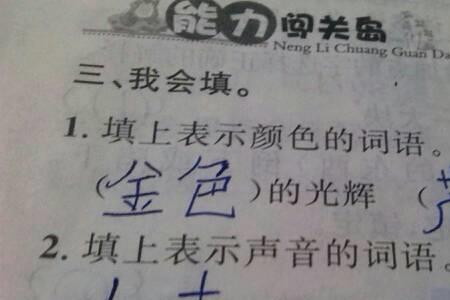 能力闯关岛
Neng Li Chuang Guan Da
三、我会填。
1. 填上表示颜色的词语。
(金色)的光辉 (
2. 填上表示声音的词语。